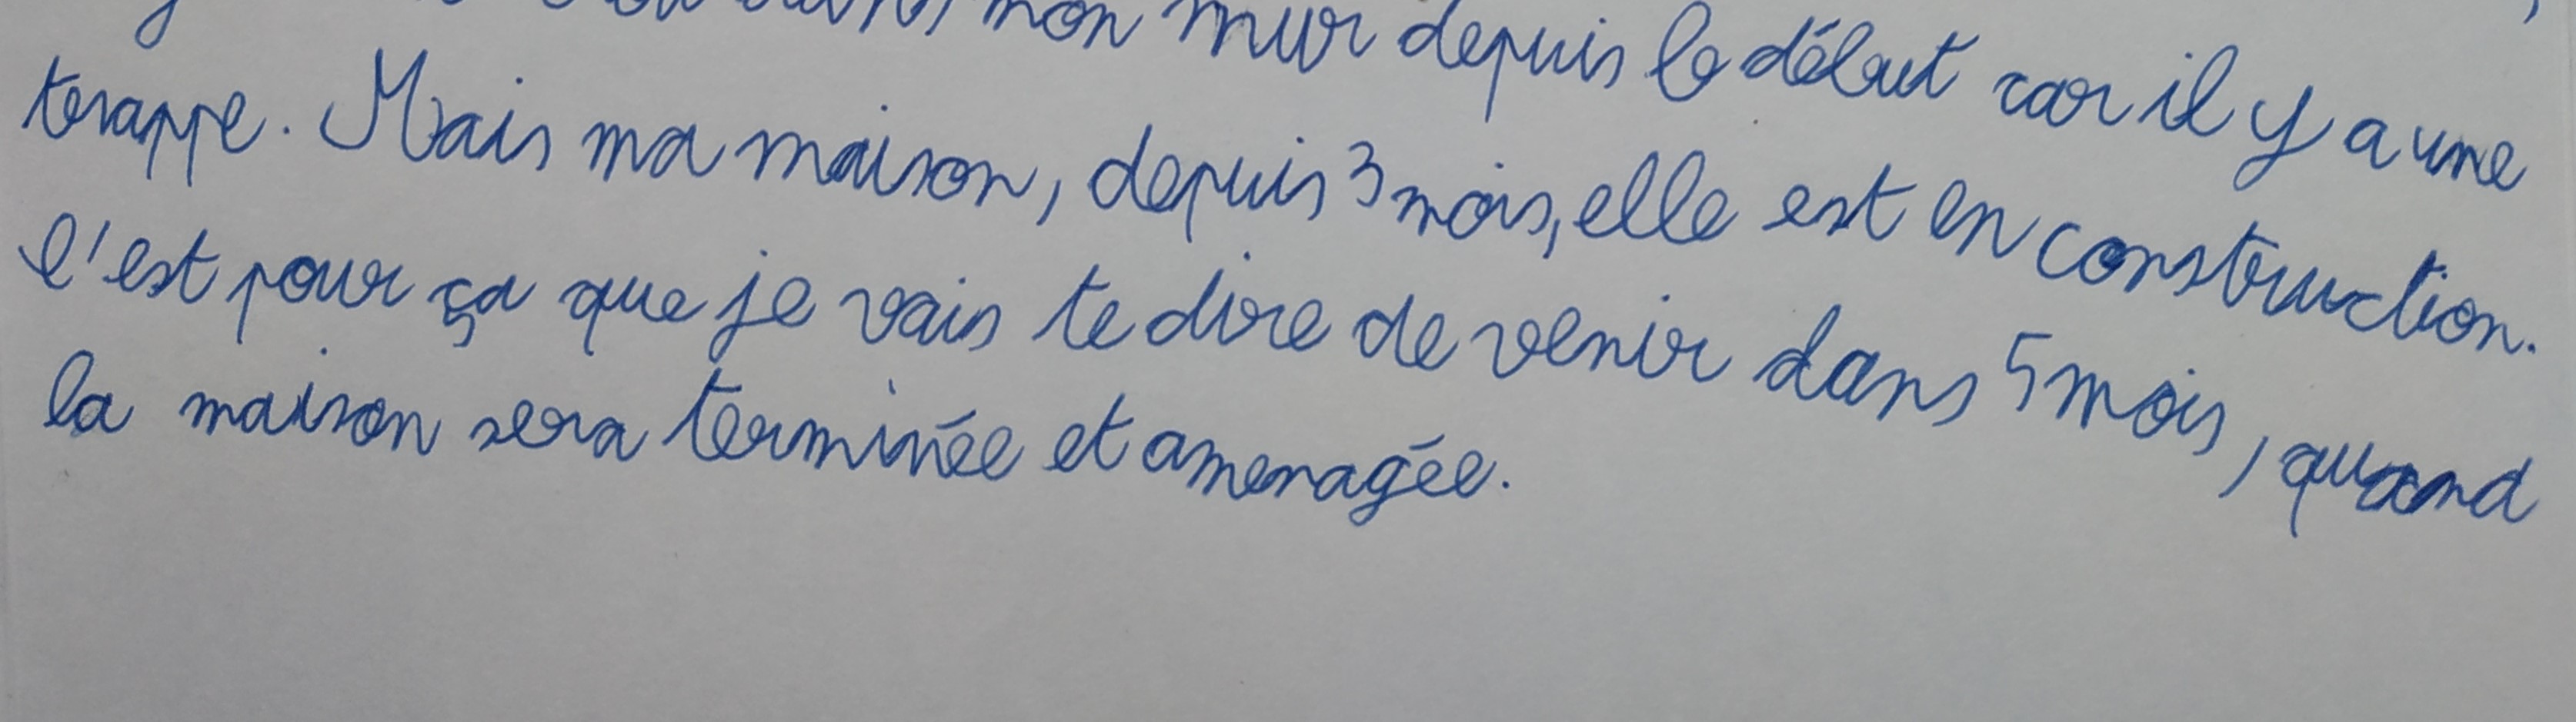 mon mur depuis le début car il y a une
trappe. Mais ma maison, depuis 3 mois, elle est en construction.
C'est pour ça que je vais te dire de venir dans 5 mois, quand
la maison sera terminée et amenagée.